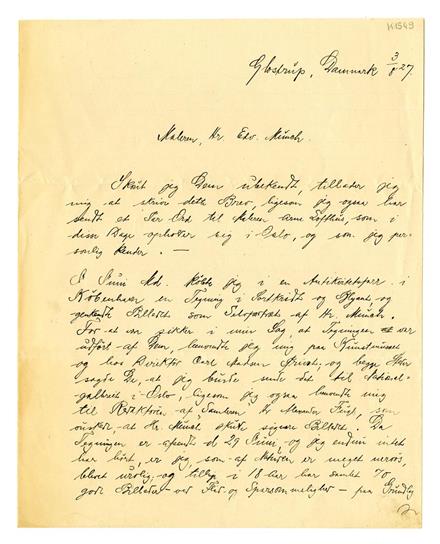 K1549
Glostrup, Danmark 3/8 27.
Maleren, Hr. Edv. Munch.
Skønt jeg Dem ubekendt, tillader jeg
mig at skrive dette Brev, ligesom jeg ogsaa har
sendt et Par Ord til Maleren Arne Lofthus, som i
disse Dage opholder sig i Oslo, og som jeg per-
sonlig kender. —
I Juni Md. købte jeg i en Antikvitetsforr. i
København en Tegning i Sortkridt og Blyant, og
genkendte Billedet som Selvportræt af Hr. Munch.
For at være sikker i min Sag, at Tegningen var
udført af Dem, henvendte jeg mig paa Kunstmuseet
og hos Direktør Carl Madsen og begge Steder
sagde De, at jeg burde sende det til National-
galleriet i Oslo, ligesom jeg ogsaa henvendte mig
til Redaktøren af "Samleren" Hr. som
ønskede, at Hr. Munch skulde signere Billedet. Da
Tegningen er afsendt d 29 Juni, og jeg endnu intet
har hørt, er jeg, som af Naturen er meget nervøs,
blevet urolig, og tillige i 18 Aar har samlet 70
gode Billeder – ved Flid og Sparsommelighed – paa